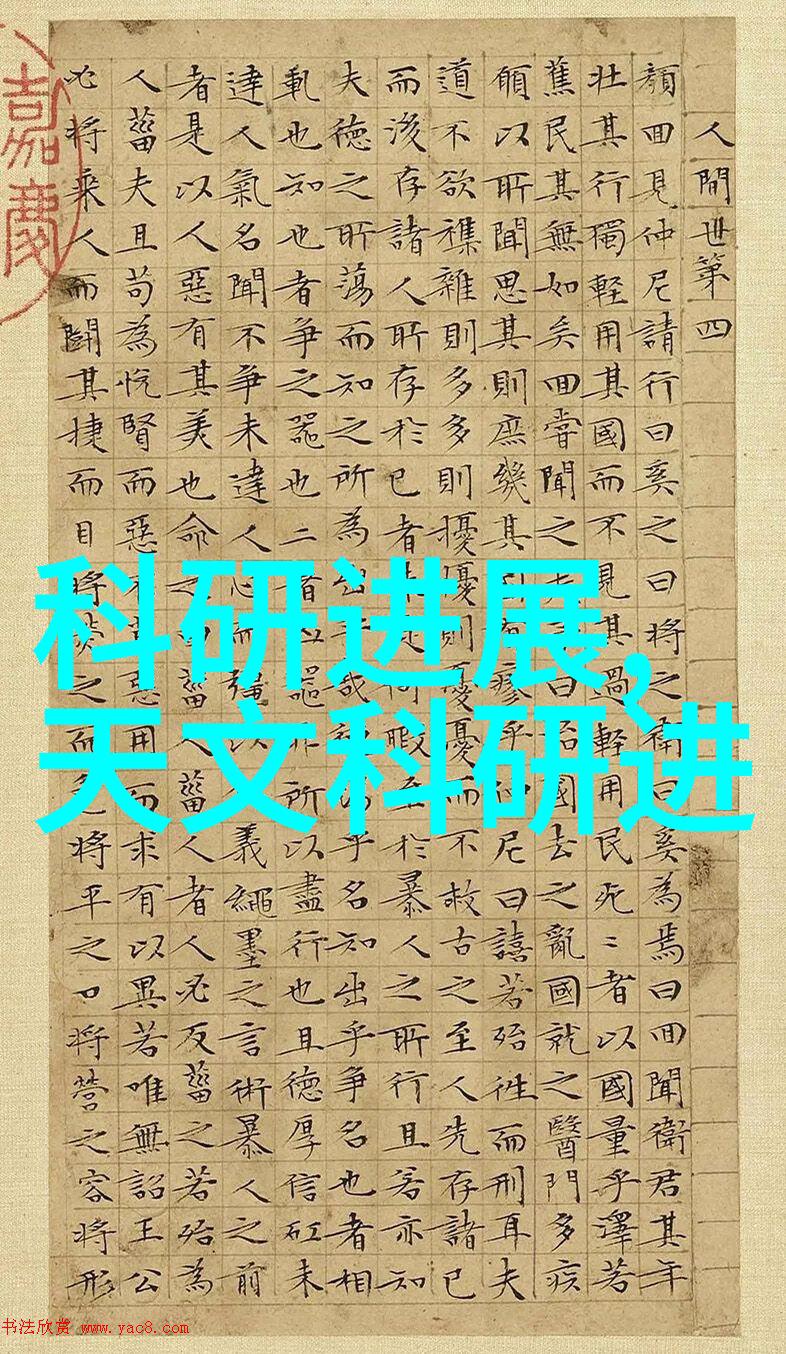 人間世第四
顏回見仲尼請行曰奚之曰將之衛曰奚為焉曰回聞衛君其年
壯其行獨輕用其國而不見其過輕用民死〻者以國量乎澤若
蕉民其無如矣回嘗聞之曰治國去之亂國就之醫門多疾
願以所聞思其則庶幾其有瘳乎仲尼曰譆若殆往而刑耳夫
道不欲襍雜則多多則擾擾則憂憂而不救古之至人先存諸已
而後存諸人所存於已者何暇至於暴人之所行且若亦知
夫德之所蕩而知之所為出乎哉乎名知出乎爭名也者相
軋也知也者爭之器也二者凶器非所以盡行也且德厚信矼未
達人氣名聞不爭未達人心而彊以義繩墨之言術暴人之前
者是以人惡有其美也命之曰菑人菑人者人必反菑之若殆為
人菑夫且苟為悅賢而惡不肖惡用而求有以異若唯無詔王公
必將乘人而鬭其捷而目將熒之而色將平之口將營之容將形
嘉慶
科研进展,
天文科研进
书法欣赏 www.yac8.com